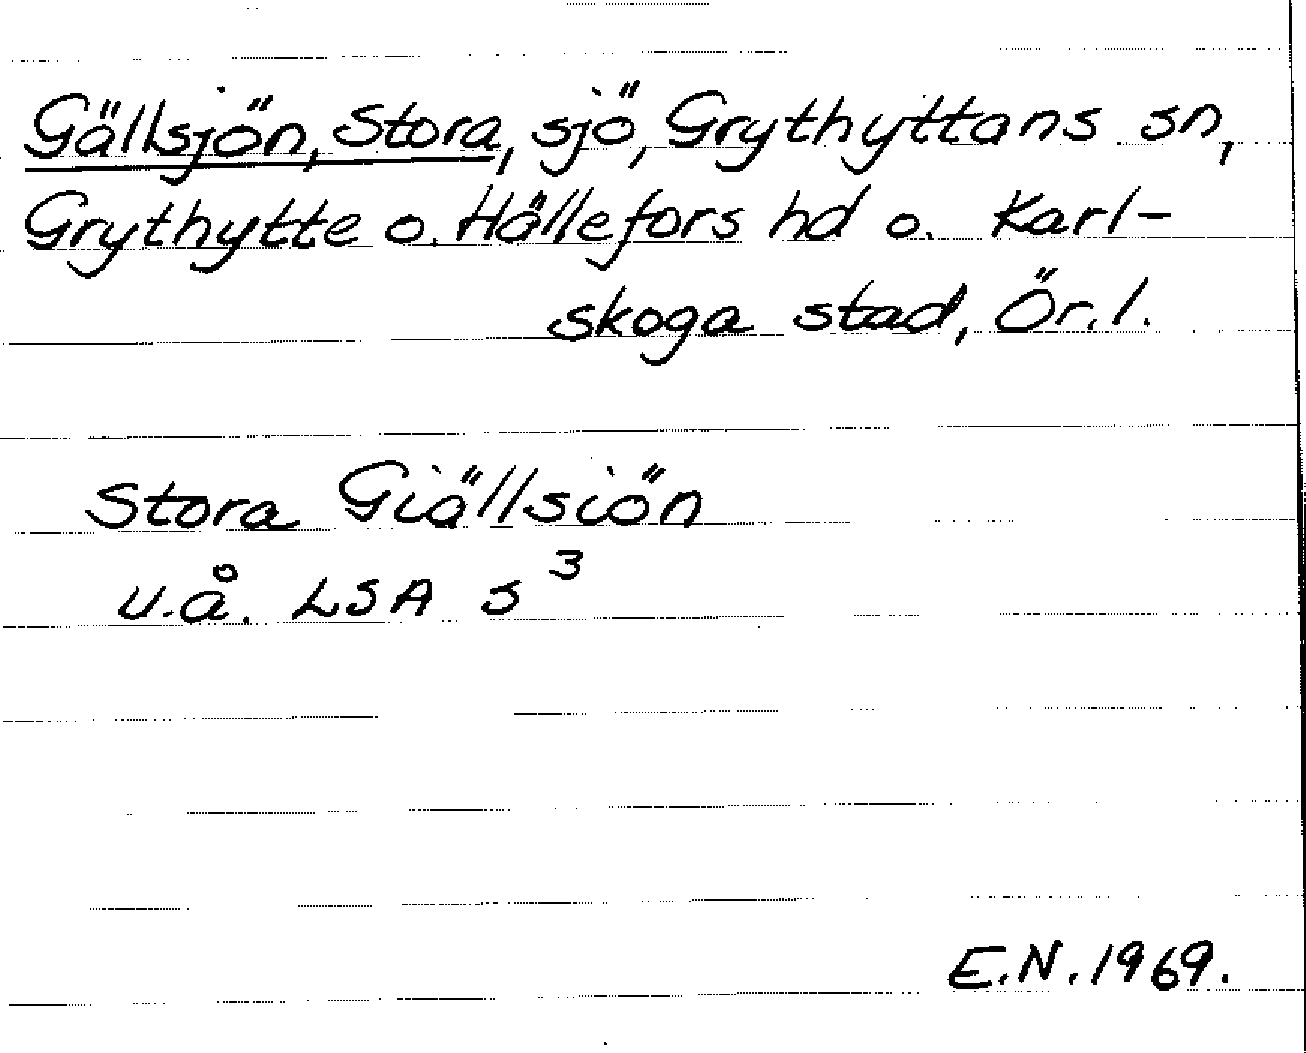 Gällsjön, Stora, sjö, Grythyttans sn,
Grythytte o. Hällefors hd o. Karl-
skoga stad, Ör.l.
Stora Giällsiön
u.å. LSA S³
E.N. 1969.